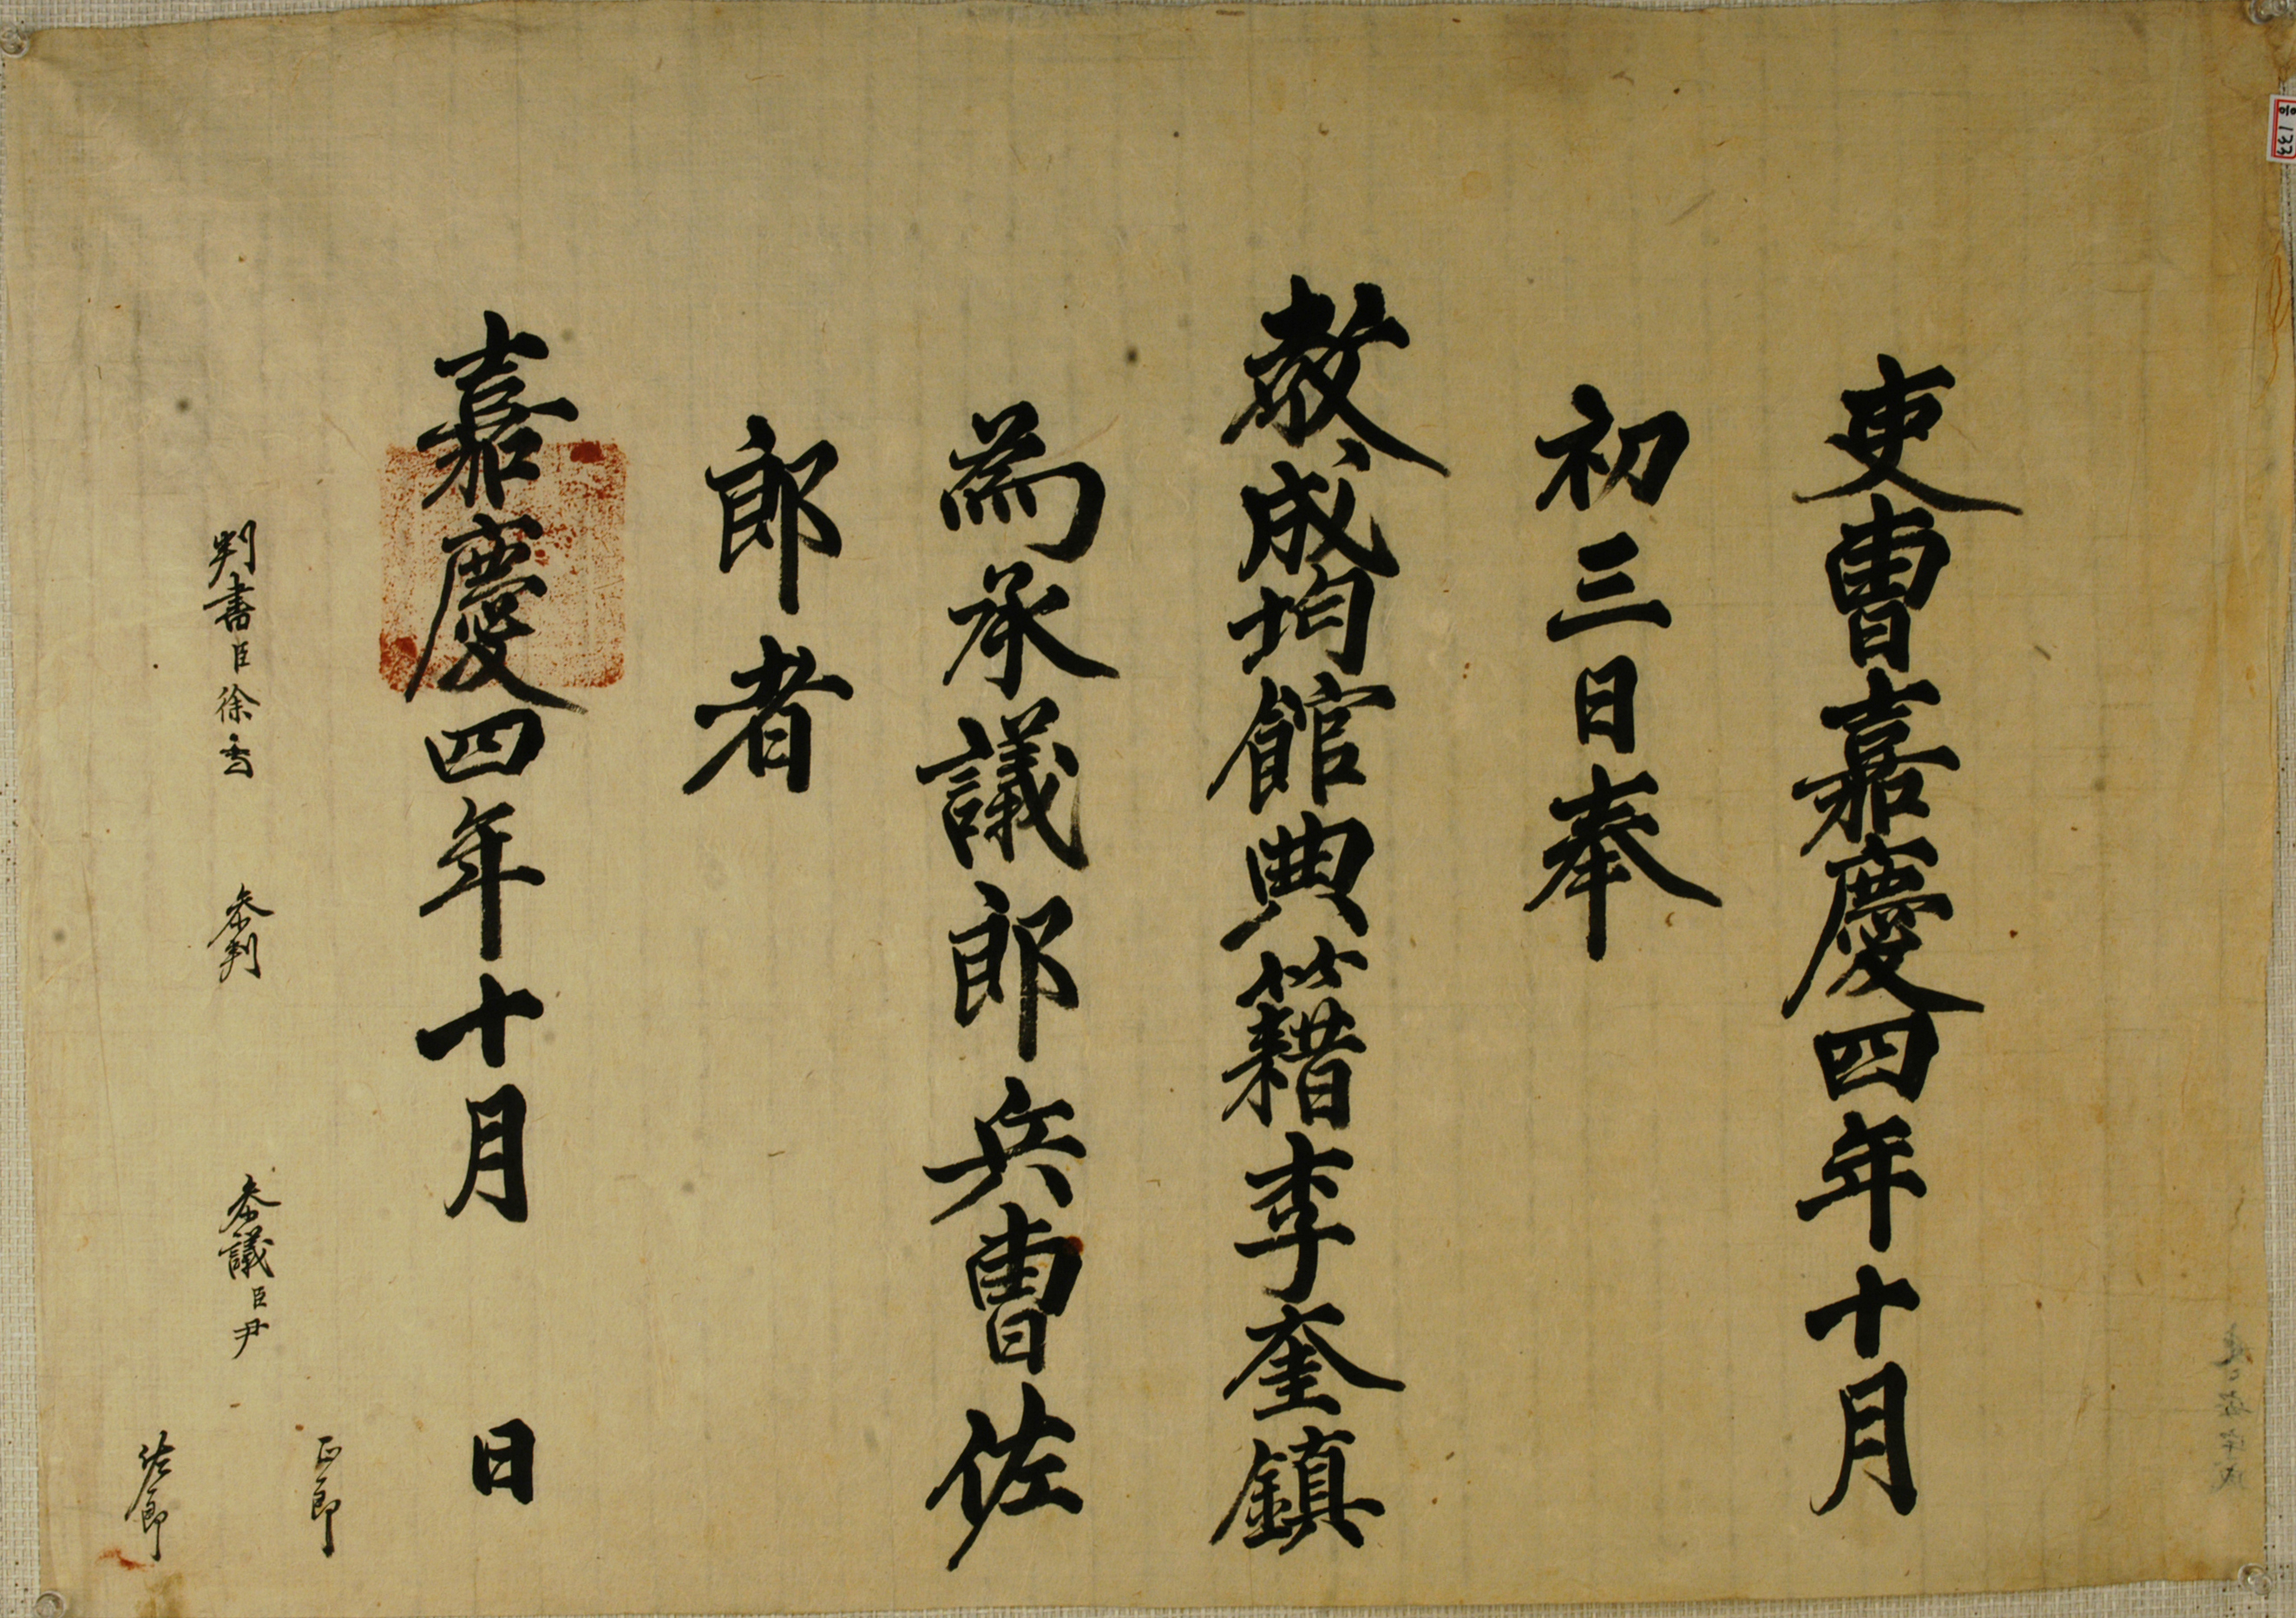 吏曹嘉慶四年十月
初三日奉
敎成均館典籍李奎鎮
為承議郎兵曹佐
郎者
嘉慶四年十月 日
正郎
判書臣徐 参判 参議臣尹
佐郎
응133